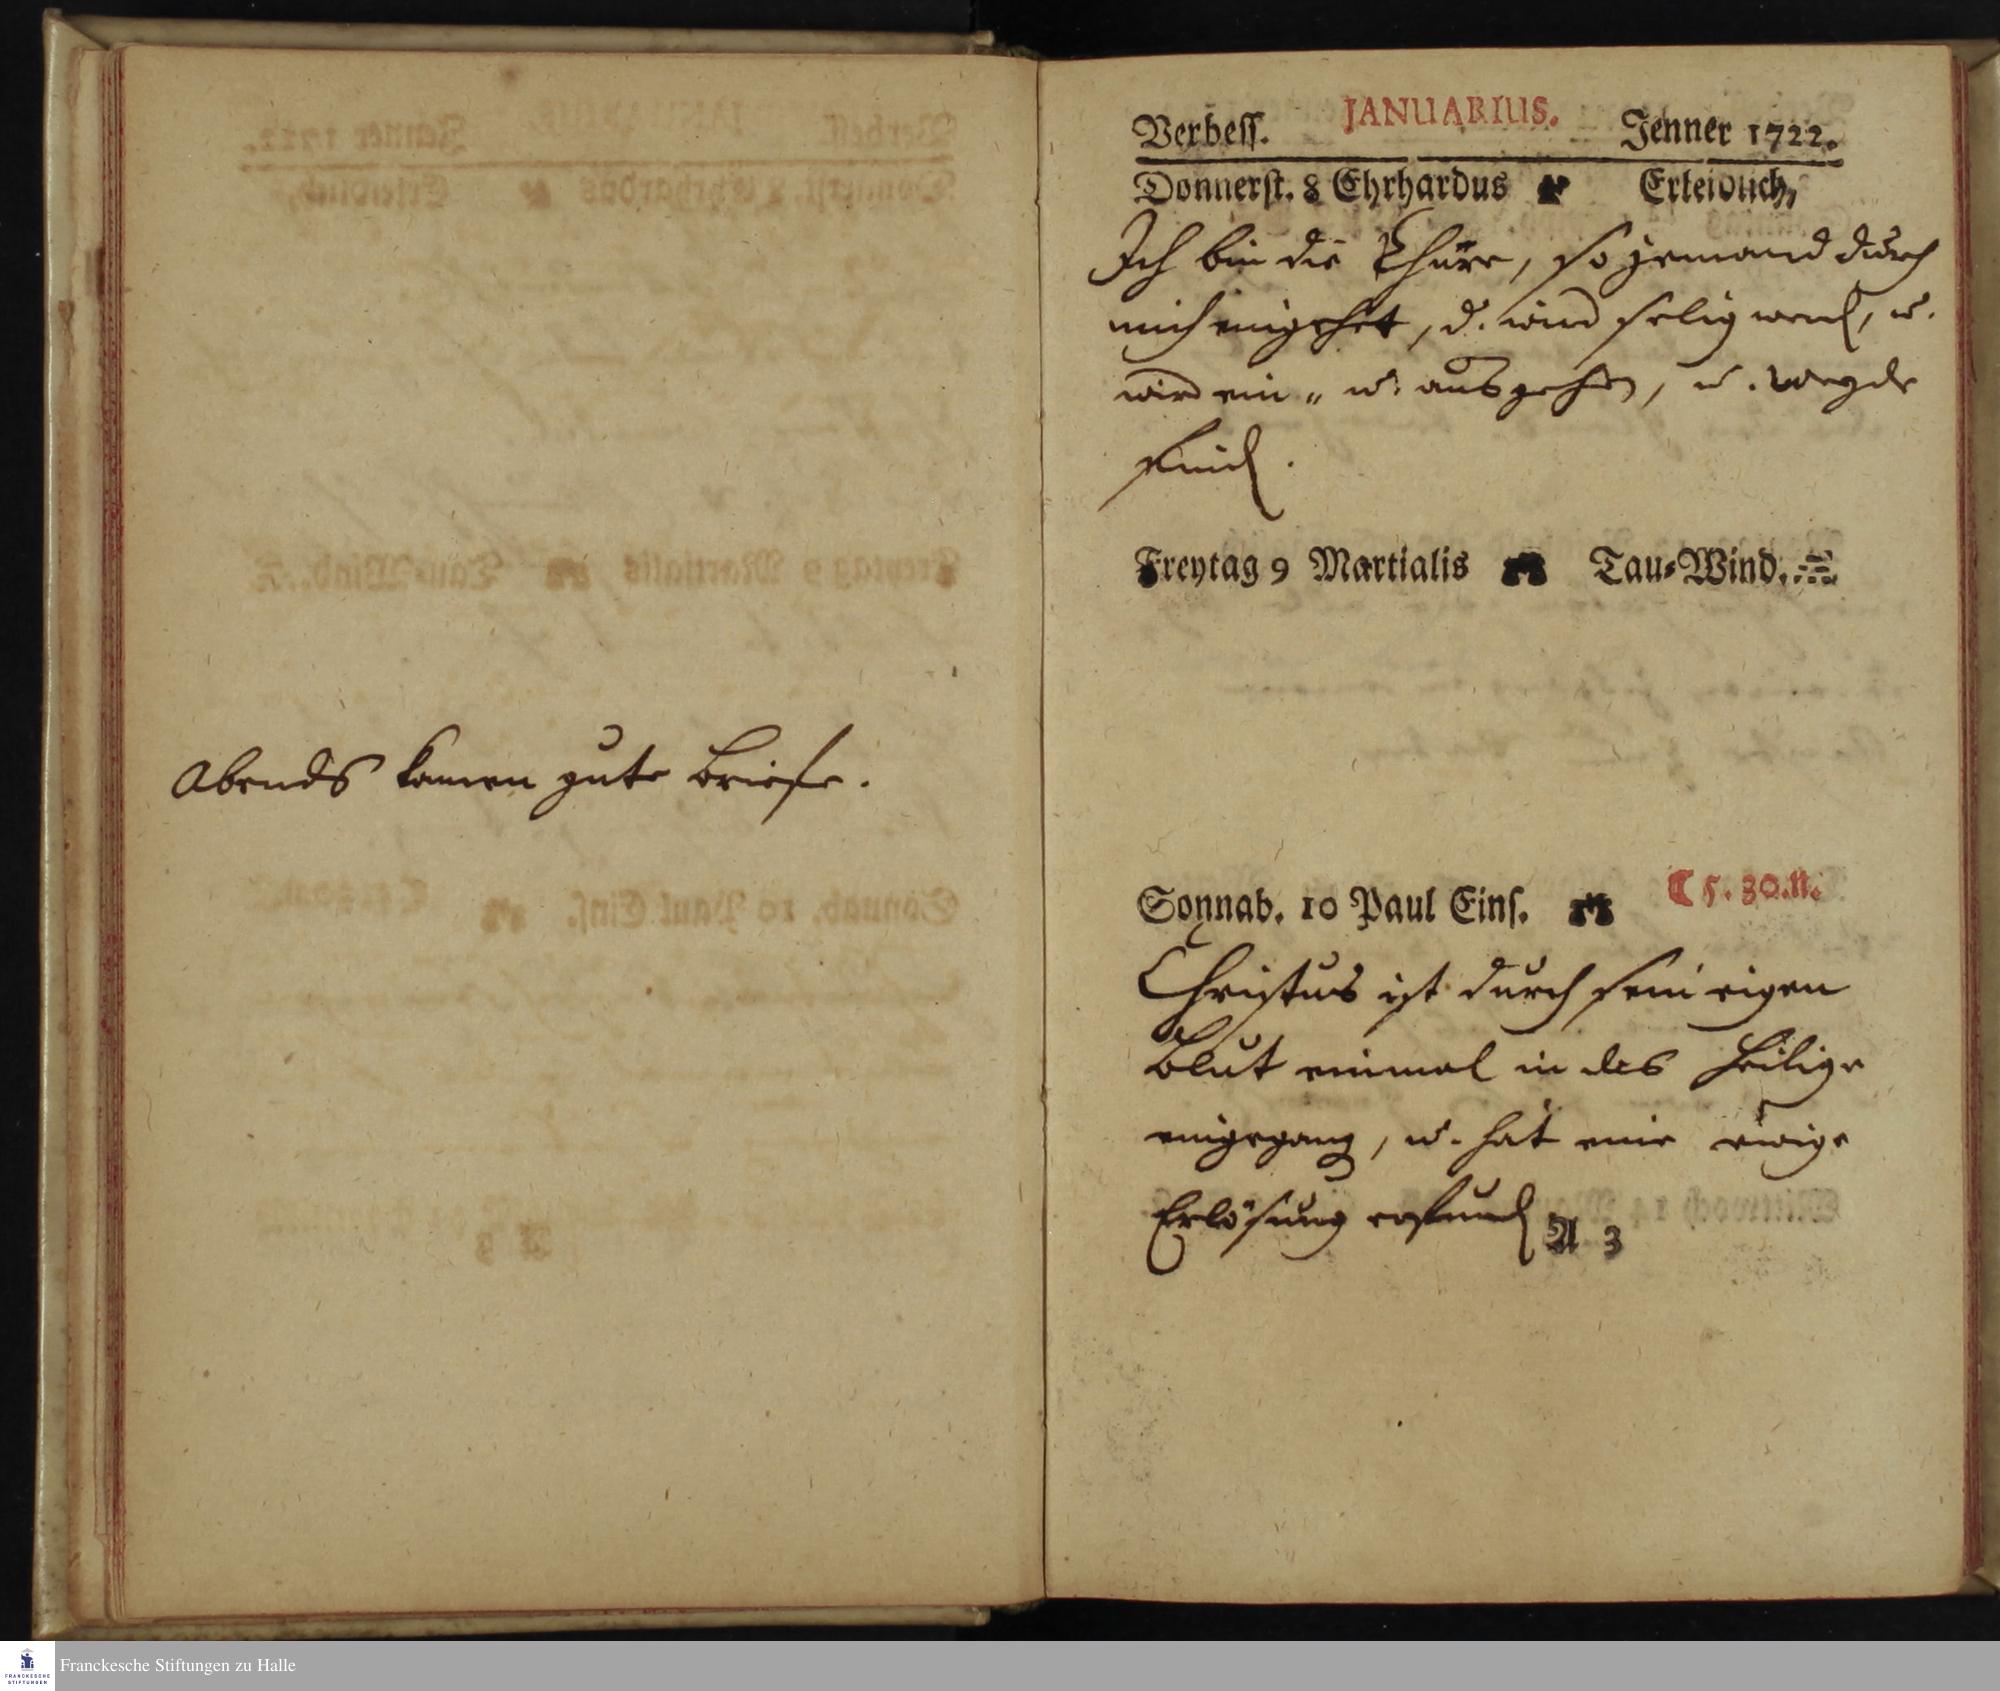 Abends kamen gute Briefe.
Verbess. JANUARIUS. Jenner 1722.
Donnerst. 8 Ehrhardus Erleidlich,
Ich bin die Thüre, so jemand durch
mich eingehet, d. wird selig werd, u.
wird ein „ u. ausgehen, u. Weyde
find.
Freytag 9 Martialis Tau-Wind.
Sonnab. 10 Paul Eins. ☾ 5. 30. N.
Christus ist durch sein eigen
Blut einmal in das Heilige
eingegang, u. hat eine ewige
Erlösung erfund
A 3
Franckesche Stiftungen zu Halle
FRANCKESCHE
STIFTUNGEN